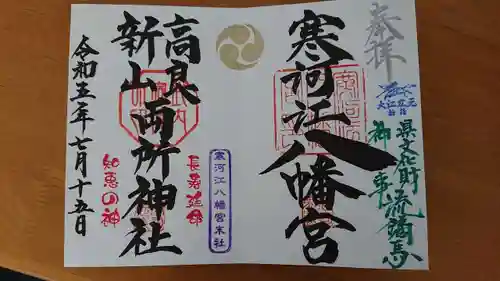 奉拝
大江広元
県文化財 流鏑馬
御神事
寒河江八幡宮
寒河江八幡宮末社
長寿延命
高良
新山 両所神社
知恵の神
令和五年七月十五日